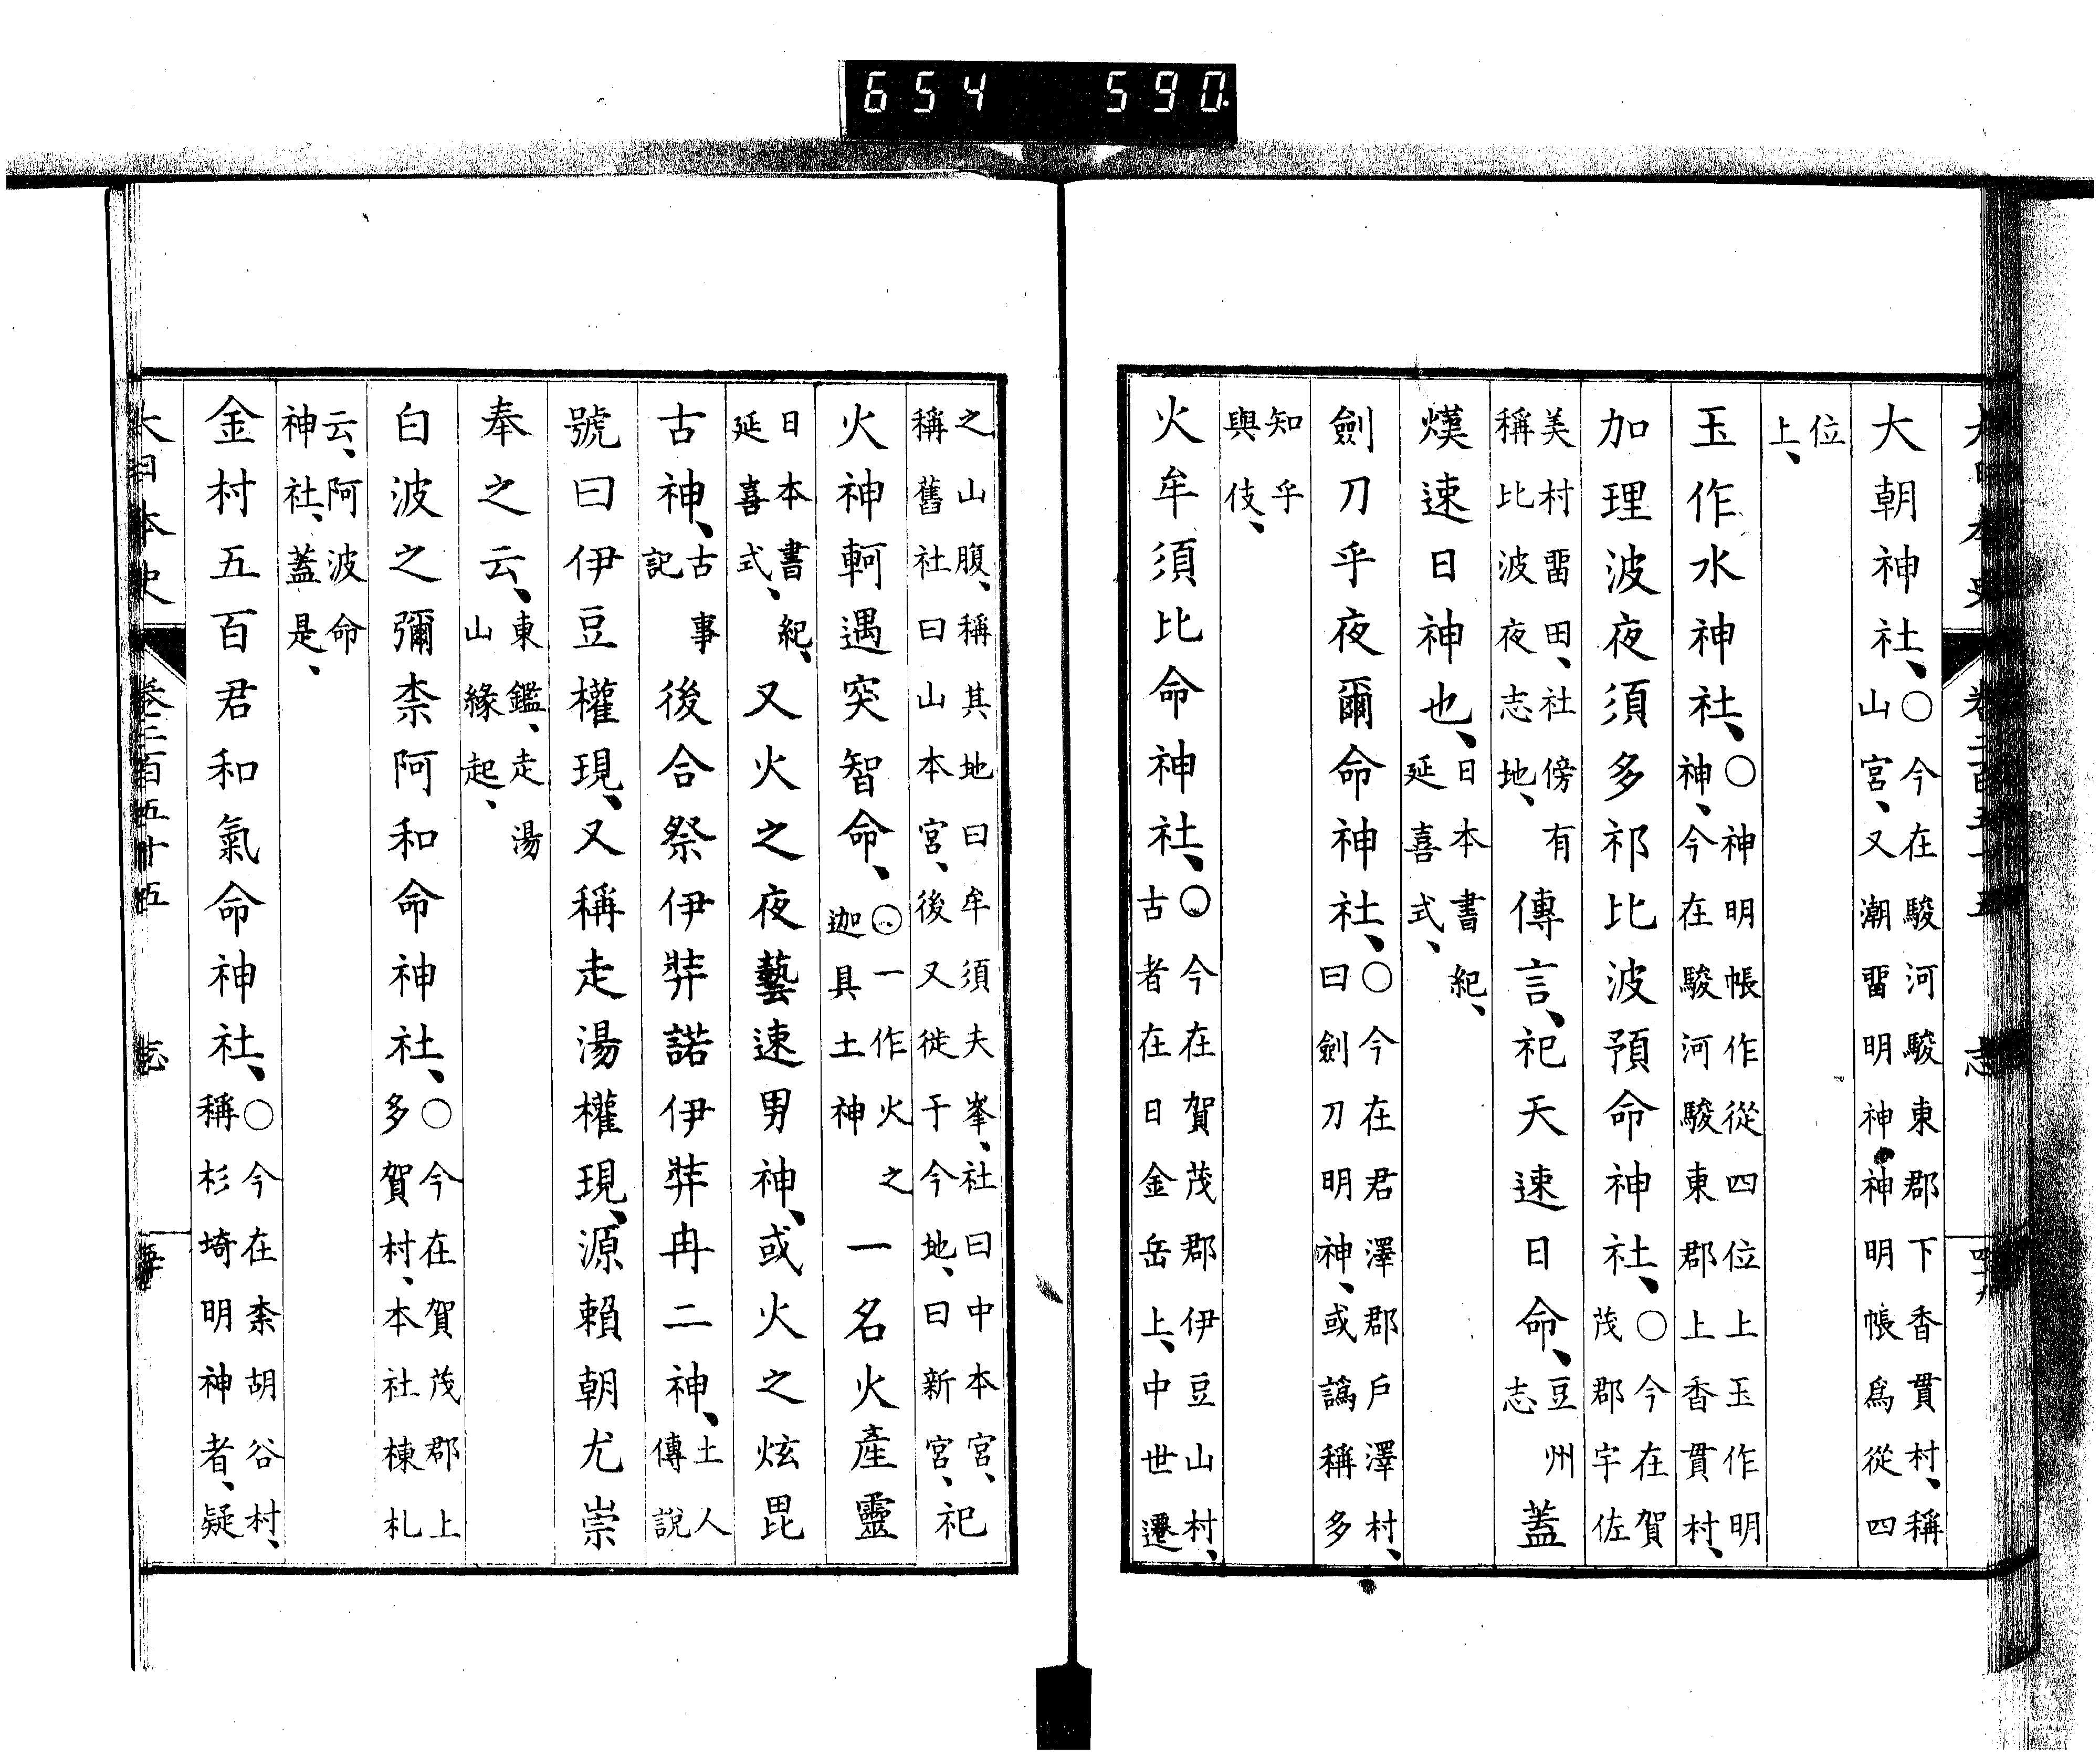 654 590
大日本史 卷二百五十五 志
大朝神社、○今在駿河駿東郡下香貫村、稱
山宮、又潮畱明神神明帳爲從四
位
上、
玉作水神社、○神明帳作從四位上玉作明
神、今在駿河駿東郡上香貫村、
加理波夜須多祁比波預命神社、○今在賀
茂郡宇佐
美村畱田、社傍有
稱比波夜志地、傳言、祀天速日命、豆州
志蓋
熯速日神也、日本書紀、
延喜式、
劍刀乎夜爾命神社、○今在君澤郡戶澤村、
曰劍刀明神、或譌稱多
知乎
與伎、
火牟須比命神社、○今在賀茂郡伊豆山村、
古者在日金岳上、中世遷
之山腹、稱其地曰牟須夫峯、社曰中本宮、
稱舊社曰山本宮、後又徙于今地、曰新宮、祀
火神軻遇突智命、○一作火之
迦具土神一名火產靈
日本書紀、
延喜式、又火之夜藝速男神、或火之炫毘
古神、古事
記後合祭伊弉諾伊弉冉二神、土人
傳說
號曰伊豆權現、又稱走湯權現、源賴朝尤崇
奉之云、東鑑、走湯
山緣起、
白波之彌柰阿和命神社、○今在賀茂郡上
多賀村、本社棟札
云、阿波命
神社、蓋是、
金村五百君和氣命神社、○今在柰胡谷村、
稱杉埼明神者、疑
大日本史 卷二百五十五 志